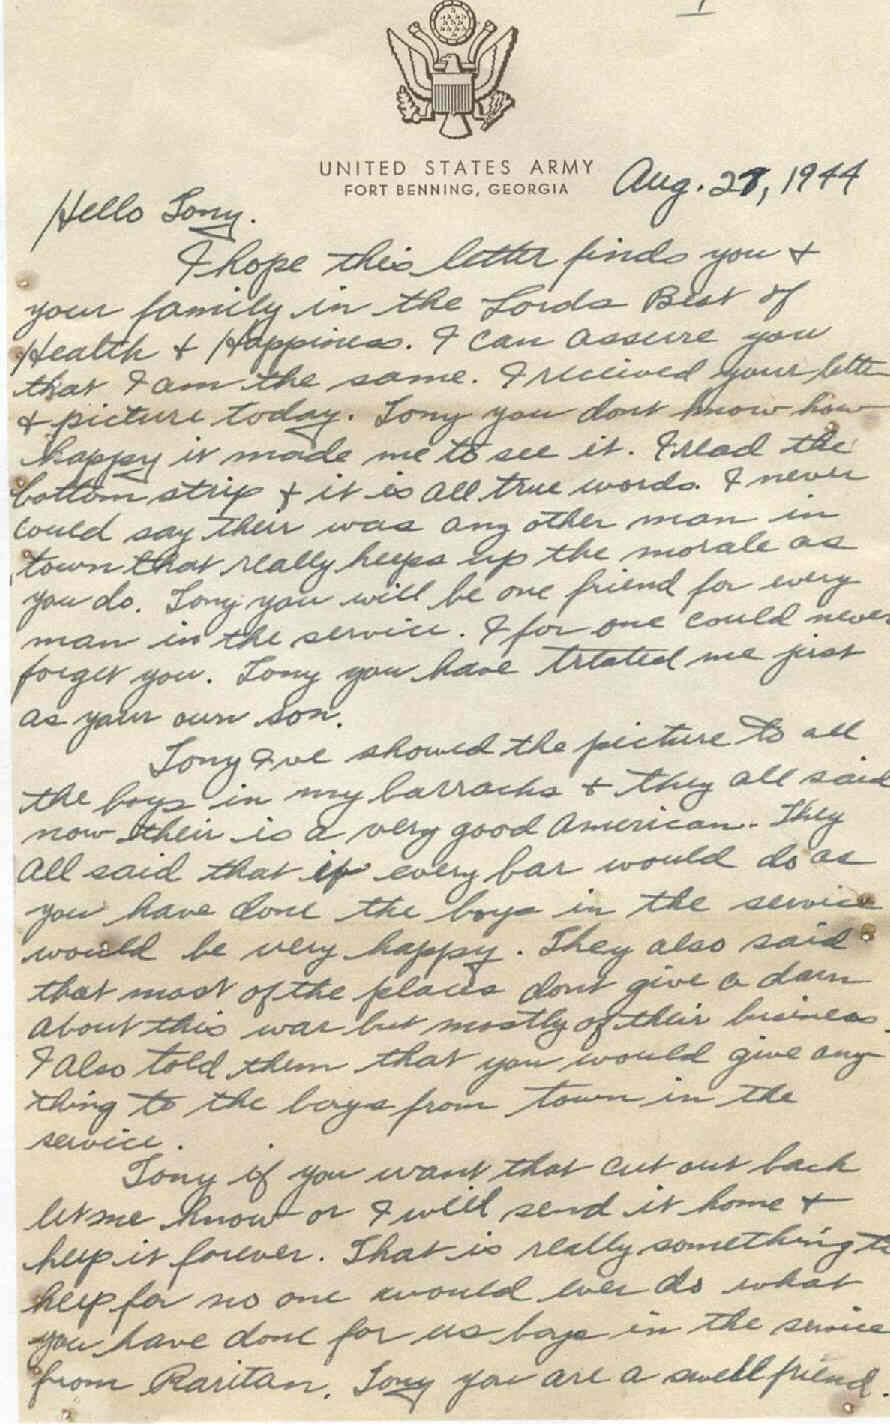 1
UNITED STATES ARMY
FORT BENNING, GEORGIA
Aug. 27, 1944
Hello Tony.
I hope this letter finds you &
your family in the Lords Best of
Health & Happiness. I can assure you
that I am the same. I received your letter
& picture today. Tony you dont know how
happy it made me to see it. I read the
bottom strip & it is all true words. I never
could say their was any other man in
town that really keeps up the morale as
you do. Tony you will be one friend for every
man in the service. I for one could never
forget you. Tony you have treated me just
as your own son.
Tony I've showed the picture to all
the boys in my barracks & they all said
now their is a very good American. They
all said that if every bar would do as
you have done the boys in the service
would be very happy. They also said
that most of the places dont give a darn
about this war but mostly of their business.
I also told them that you would give any
thing to the boys from town in the
service.
Tony if you want that cut out back
let me know or I will send it home &
keep it forever. That is really something to
keep for no one would ever do what
you have done for us boys in the service
from Raritan. Tony you are a swell friend.